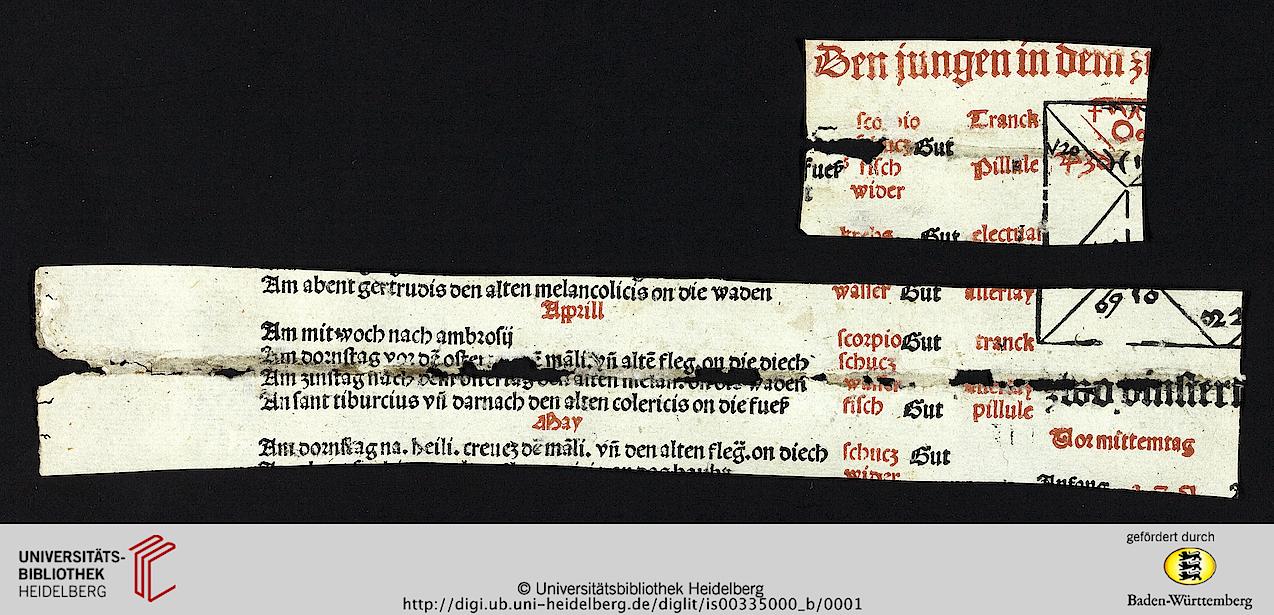 Den jungen in dem
scorpio Tranck
Gut
fueß fisch Pillule
wider
krebs Gut electuar
Am abent gertrudis den alten melancolicis on die waden wasser Gut allerlay
Apprill
Am mitwoch nach ambrosij scorpio Gut tranck
Am dornstag vor dẽ oster mãli. vñ altẽ fleg. on die diech schucz
Am zinstag nach dem ostertag den alten melan. on die waden wasser allerlay
An sant tiburcius vñ darnach den alten colericis on die fueß fisch Gut pillule
zwo vinstern
May
Vormittemtag
Am dornstag na. heili. creucz dẽ mãli. vñ den alten fleg. on diech schucz Gut
wider
Anfang
69 10
UNIVERSITÄTS-
BIBLIOTHEK
HEIDELBERG
© Universitätsbibliothek Heidelberg
http://digi.ub.uni-heidelberg.de/diglit/is00335000_b/0001
gefördert durch
Baden-Württemberg